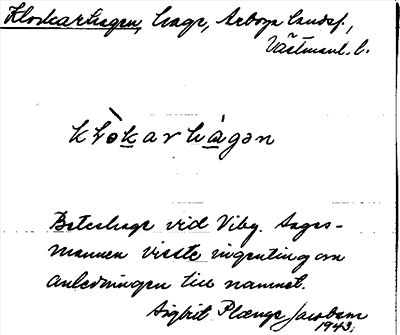 Klockarhagen, hage, Arboga landsf.,
Västmanl. l.
klòkarhágən
Beteshage vid Viby. Sages-
mannen visste ingenting om
anledningen till namnet.
Sigbrit Plænge Jacobson
1943.